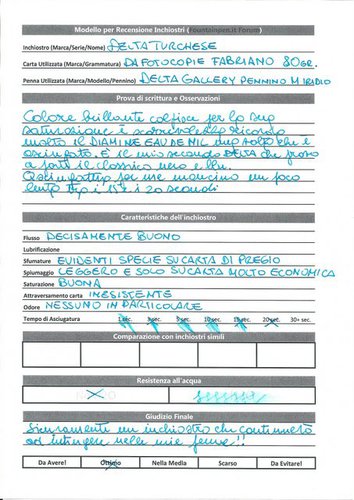 Modello per Recensione Inchiostri (Fountainpen.it Forum)
Inchiostro (Marca/Serie/Nome) DELTA TURCHESE
Carta Utilizzata (Marca/Grammatura) DA FOTOCOPIE FABRIANO 80GR.
Penna Utilizzata (Marca/Modello/Pennino) DELTA GALLERY PENNINO M IRIDIO
Prova di scrittura e Osservazioni
Colore brillante colpisce per la sua
saturazione e scorrevolezza ricorda
molto il DIAMINE EAU DE NIL una volta che è
asciugato. È il mio secondo DELTA che provo
a parte il classico nero e blu.
Qui in fatto per me asciuga un poco
lento tra i 15 e i 20 secondi
Caratteristiche dell'inchiostro
Flusso DECISAMENTE BUONO
Lubrificazione
Sfumature EVIDENTI SPECIE SU CARTA DI PREGIO
Spiumaggio LEGGERO E SOLO SU CARTA MOLTO ECONOMICA
Saturazione BUONA
Attraversamento carta INESISTENTE
Odore NESSUNO IN PARTICOLARE
Tempo di Asciugatura 1 sec. 3 sec. 5 sec. 10 sec. 15 sec. 20 sec. 30+ sec.
Comparazione con inchiostri simili
Resistenza all'acqua
Giudizio Finale
Sicuramente un inchiostro che continuerò
ad intingere nelle mie penne!!
Da Avere! Ottimo Nella Media Scarso Da Evitare!